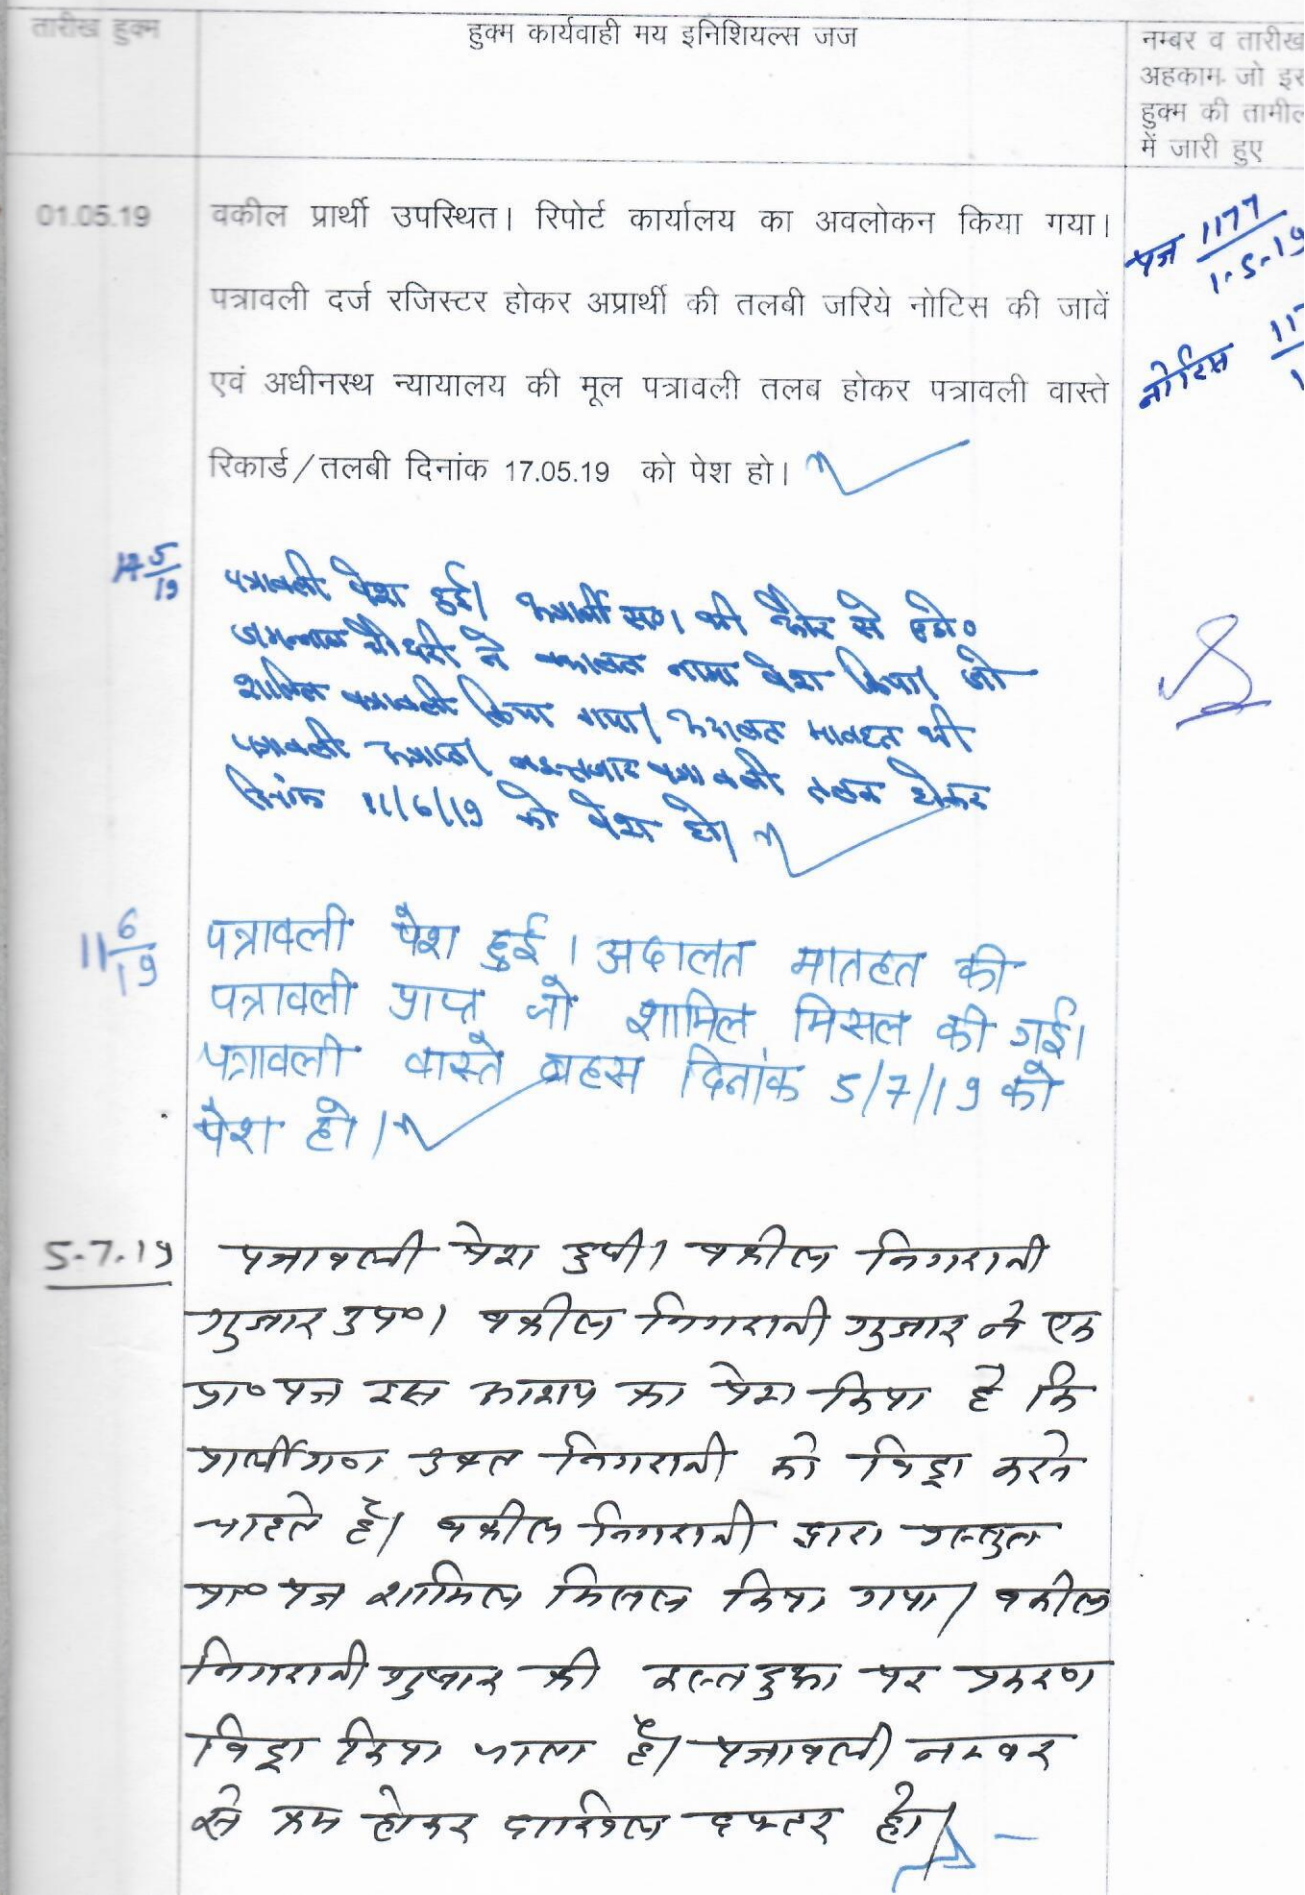 तारीख हुक्म
हुक्म कार्यवाही मय इनिशियल्स जज
नम्बर व तारीख
अहकाम जो इस
हुक्म की तामील
में जारी हुए
01.05.19
वकील प्रार्थी उपस्थित। रिपोर्ट कार्यालय का अवलोकन किया गया।
पत्रावली दर्ज रजिस्टर होकर अप्रार्थी की तलबी जरिये नोटिस की जावें
एवं अधीनस्थ न्यायालय की मूल पत्रावली तलब होकर पत्रावली वास्ते
रिकार्ड/तलबी दिनांक 17.05.19 को पेश हो।
पत्र 1177
1-5-19
नोटिस
17 5/19
पत्रावली पेश हुई। अप्रार्थी सं० 1 की ओर से एडो०
चौधरी ने वकालत नामा पेश किया जो
शामिल पत्रावली किया गया। अदालत मातहत की
पत्रावली अप्राप्त। पत्रावली तलब होकर
दिनांक 11/6/19 को पेश हो।
11 6/19
पत्रावली पेश हुई। अदालत मातहत की
पत्रावली प्राप्त जो शामिल मिसल की गई।
पत्रावली वास्ते बहस दिनांक 5/7/19 को
पेश हो।
5-7-19
पत्रावली पेश हुयी। वकील निगरानी
गुजार उप०। वकील निगरानी गुजार ने एक
प्रा० पत्र इस आशय का पेश किया है कि
प्रार्थीगण उक्त निगरानी को विड्रा करने
चाहते है। वकील निगरानी द्वारा प्रस्तुत
प्रा० पत्र शामिल मिसल किया गया। वकील
निगरानी गुजार की इस्तदुआ पर प्रकरण
विड्रा किया जाता है। पत्रावली नम्बर
से कम होकर दाखिल दफ्तर हो।